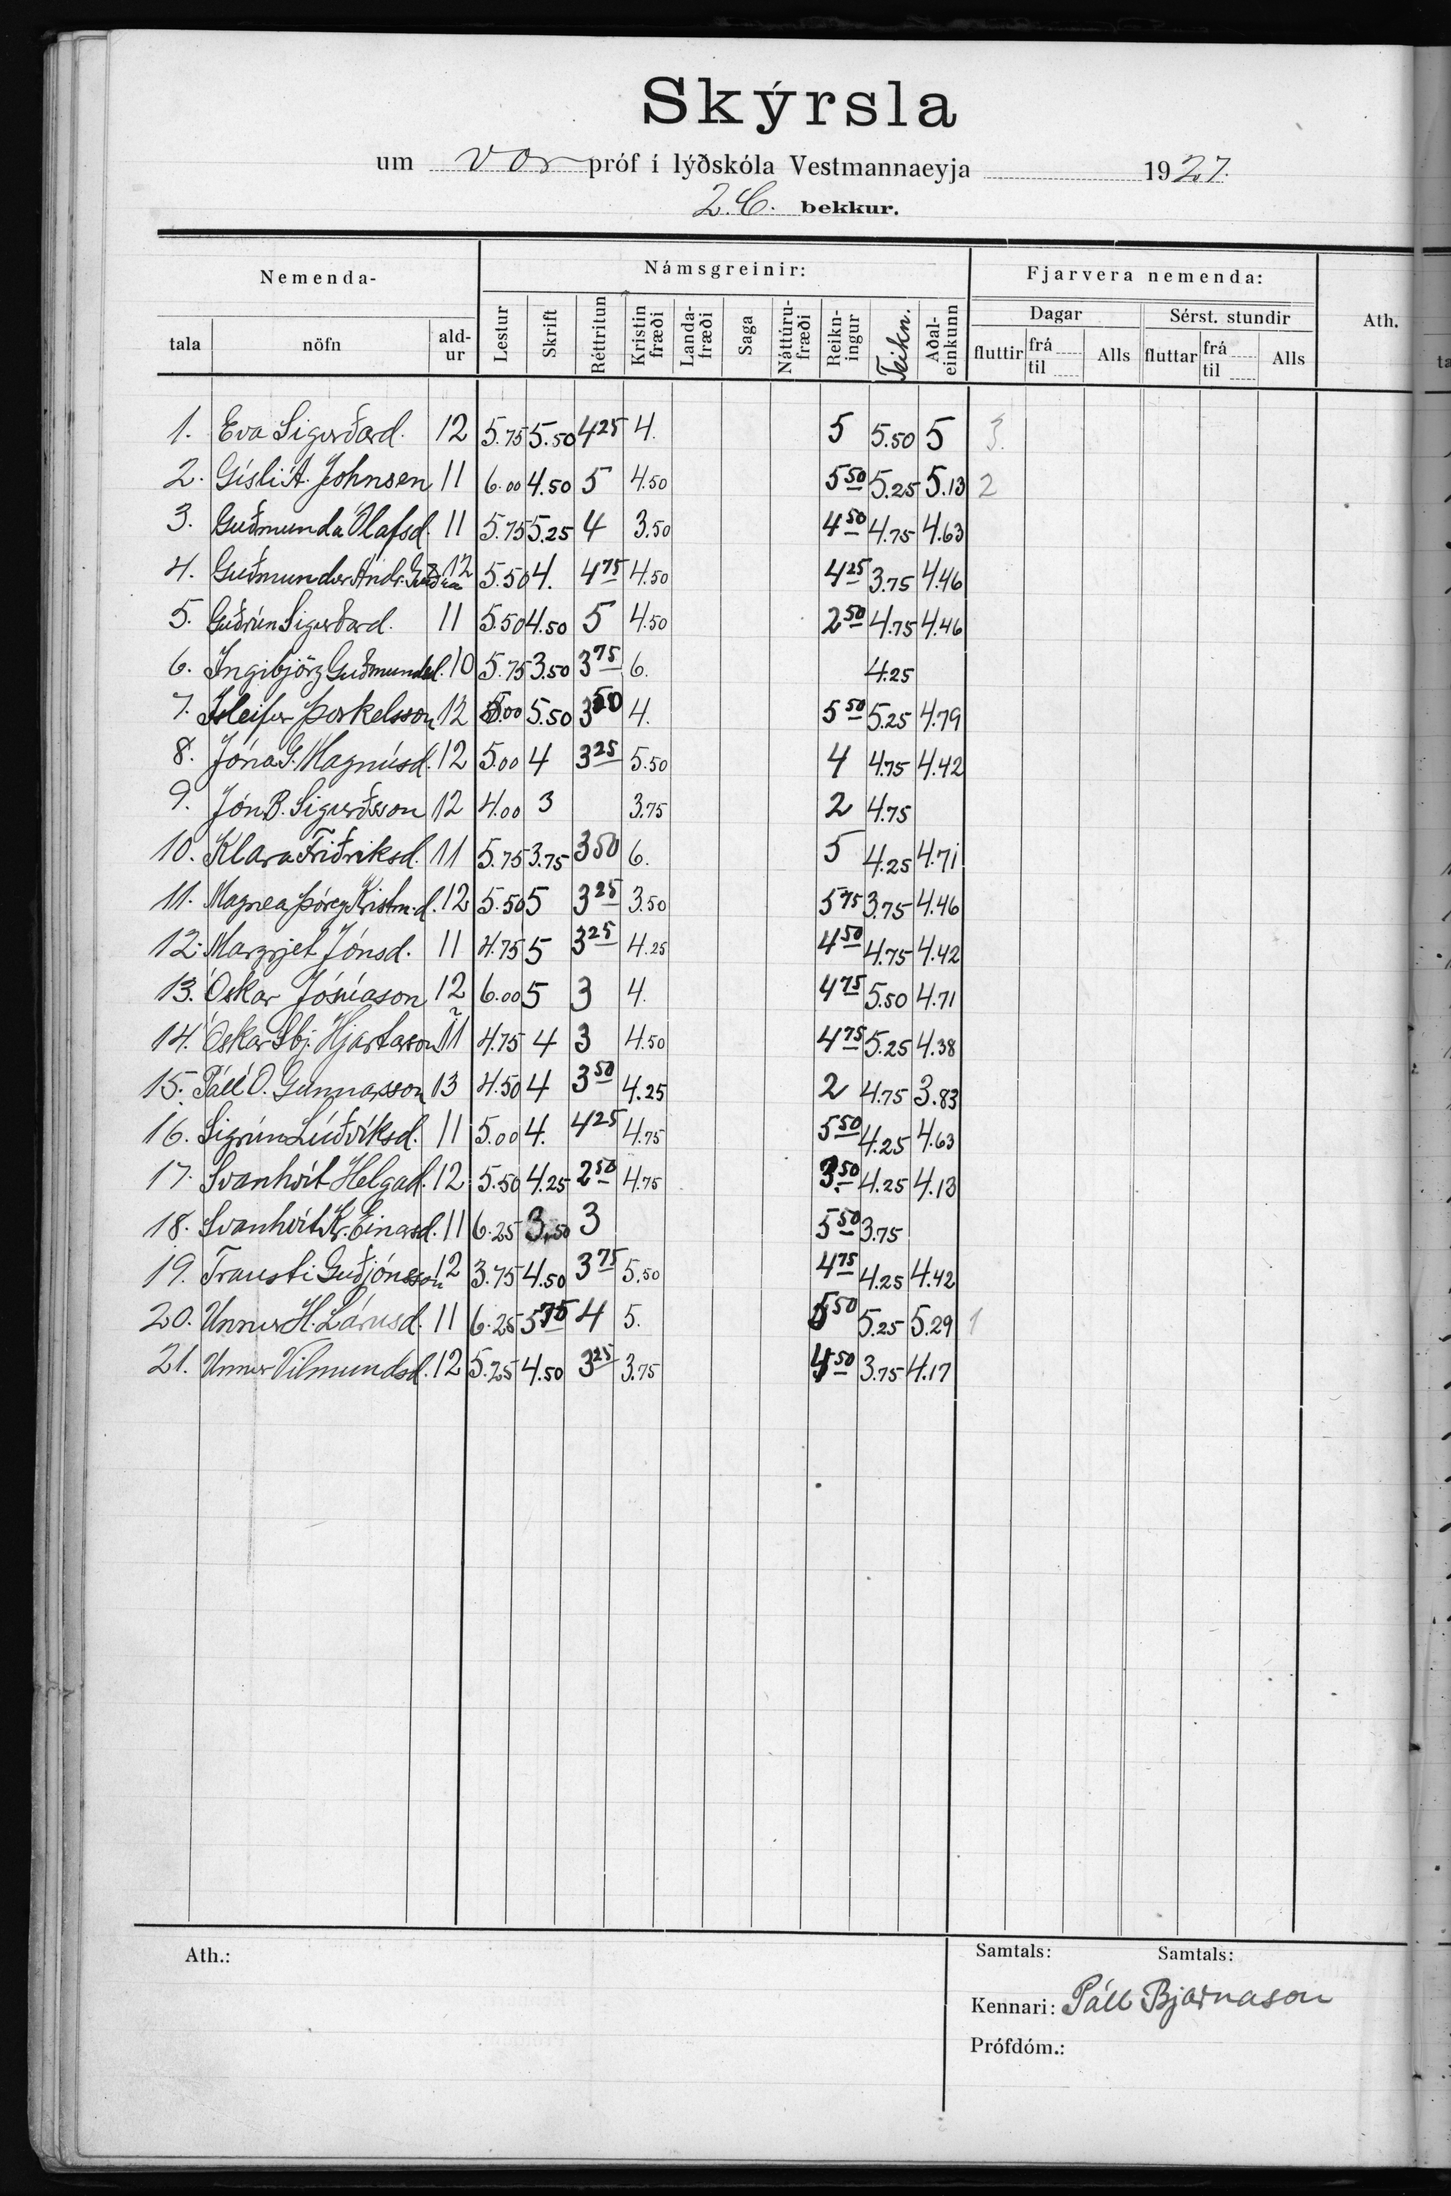 Skýrsla
um vor próf í lýðskóla Vestmannaeyja 1927.
2. C. bekkur.
Nemenda- Námsgreinir: Fjarvera nemenda: Ath.
Dagar Sérst. stundir
tala nöfn ald-ur Lestur Skrift Réttritun Kristin fræði Landa-fræði Saga Náttúru-fræði Reikn-ingur Teikn. Aðal-einkunn fluttir frá til Alls fluttar frá til Alls
1. Eva Sigurðard. 12 5.75 5.50 4 25 4. 5 5.50 5 3.
2. Gísli Á. Johnsen 11 6.00 4.50 5 4.50 5 50 5.25 5.13 2
3. Guðmunda Ólafsd. 11 5.75 5.25 4 3.50 4 50 4.75 4.63
4. Guðmundur Andr. 12 5.50 4. 4 75 4.50 4 25 3.75 4.46
5. Guðrún Sigurðard. 11 5.50 4.50 5 4.50 2 50 4.75 4.46
6. Ingibjörg Guðmundsd. 10 5.75 3.50 3 75 6. 4.25
7. Ísleifur Þorkelsson 12 5.00 5.50 3 50 4. 5 50 5.25 4.79
8. Jóna G. Magnúsd. 12 5.00 4 3 25 5.50 4 4.75 4.42
9. Jón B. Sigurðsson 12 4.00 3 3.75 2 4.75
10. Klara Friðriksd. 11 5.75 3.75 3 50 6. 5 4.25 4.71
11. Magnea Þórey Kristm.d. 12 5.50 5 3 25 3.50 5 75 3.75 4.46
12. Margrjet Jónsd. 11 4.75 5 3 25 4.25 4 50 4.75 4.42
13. Óskar Jósúason 12 6.00 5 3 4. 4 75 5.50 4.71
14. Óskar Sbj. Hjartarson 11 4.75 4 3 4.50 4 75 5.25 4.38
15. Páll O. Gunnarsson 13 4.50 4 3 50 4.25 2 4.75 3.83
16. Sigrún Lúðvíksd. 11 5.00 4. 4 25 4.75 5 50 4.25 4.63
17. Svanhvít Helgad. 12 5.50 4.25 2 50 4.75 3 50 4.25 4.13
18. Svanhvít Kr. Einarsd. 11 6.25 3.50 3 5 50 3.75
19. Trausti Guðjónsson 12 3.75 4.50 3 75 5.50 4 75 4.25 4.42
20. Unnur H. Lárusd. 11 6.25 5 75 4 5. 5 50 5.25 5.29 1
21. Unnur Vilmundsd. 12 5.25 4.50 3 25 3.75 4 50 3.75 4.17
Ath.: Samtals: Samtals:
Kennari: Páll Bjarnason
Prófdóm.: